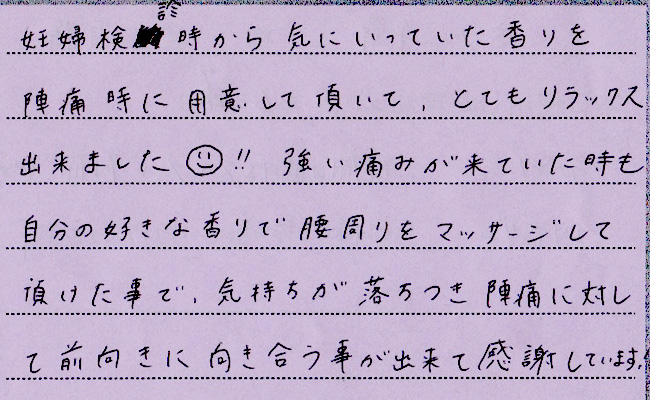 妊婦検診時から気にいっていた香りを
陣痛時に用意して頂いて、とてもリラックス
出来ました☺!! 強い痛みが来ていた時も
自分の好きな香りで腰周りをマッサージして
頂けた事で、気持ちが落ちつき陣痛に対し
て前向きに向き合う事が出来て感謝しています。